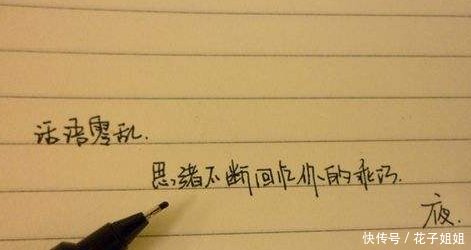 话语零乱.
思绪不断回忆你的乖巧.
夜.
快传号 / 花子姐姐